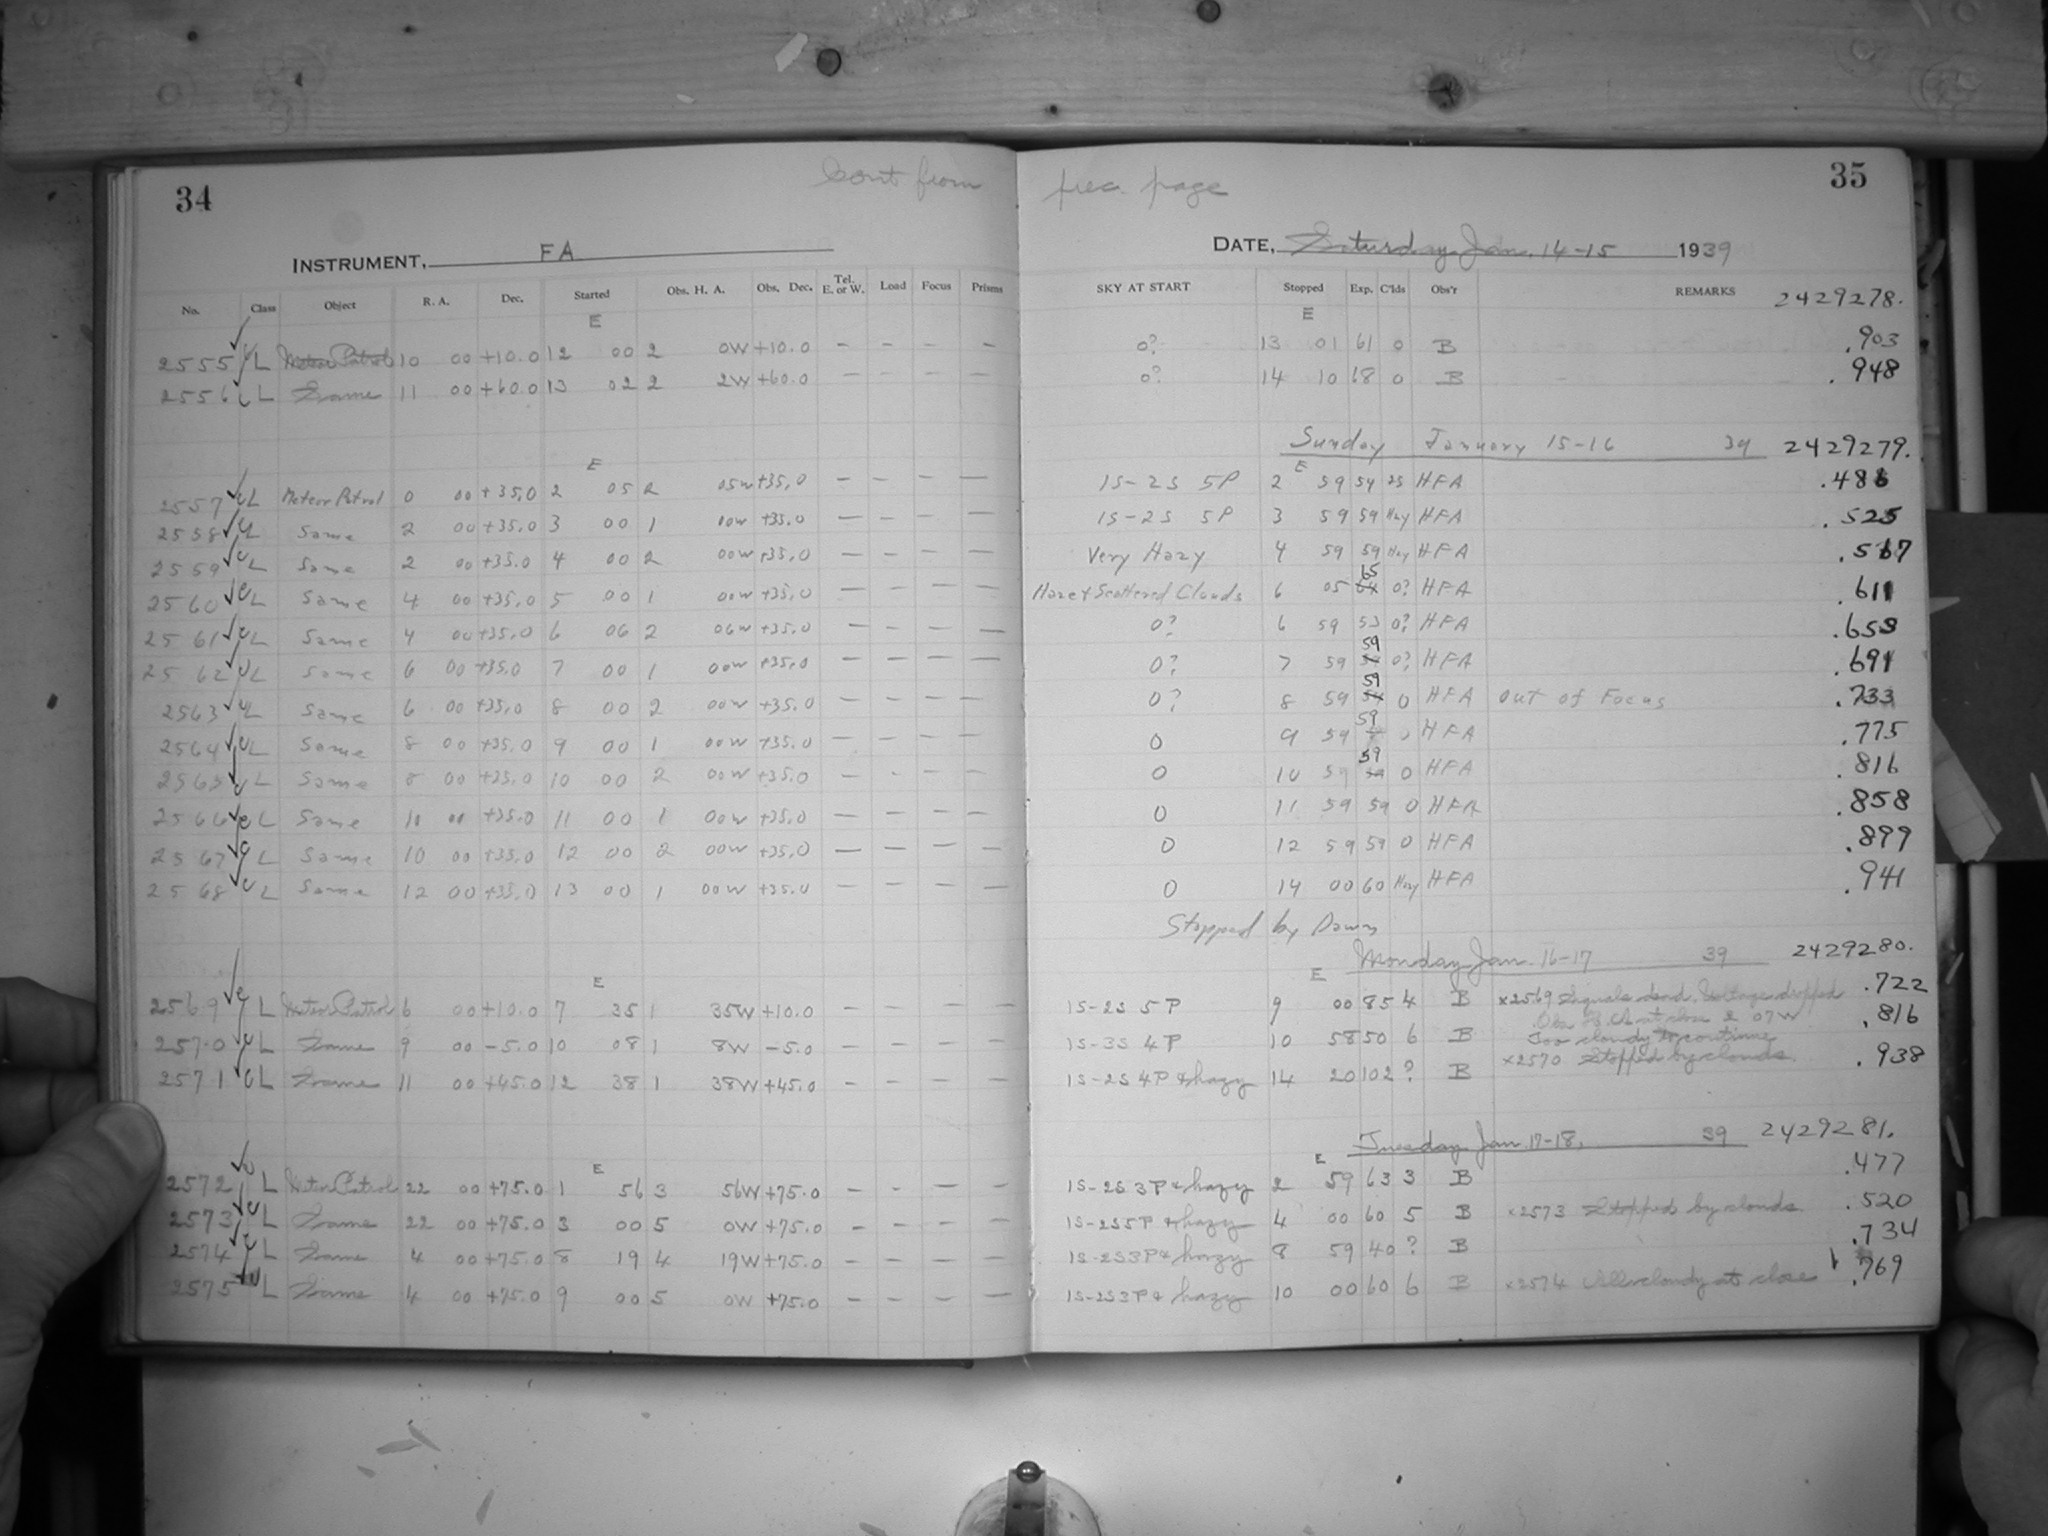 34 Cont from prec. page 35
INSTRUMENT, FA DATE, Saturday Jan. 14-15 1939
No. Class Object R. A. Dec. Started Obs. H. A. Obs. Dec. Tel. E. or W. Load Focus Prisms SKY AT START Stopped Exp. C'lds Obs'r REMARKS 2429278.
E E
2555 L Meteor Patrol 10 00 +10.0 12 00 2 0W +10.0 - - - - 0? 13 01 61 0 B .903
2556 L Same 11 00 +60.0 13 02 2 2W +60.0 - - - - 0? 14 10 68 0 B .948
Sunday January 15-16 39 2429279.
E E
2557 L Meteor Patrol 0 00 +35.0 2 05 2 05W +35.0 - - - - 1S-2S 5P 2 59 54 2S HFA .486
2558 L Same 2 00 +35.0 3 00 1 00W +35.0 - - - - 1S-2S 5P 3 59 59 Hzy HFA .525
2559 L Same 2 00 +35.0 4 00 2 00W +35.0 - - - - Very Hazy 4 59 59 Hzy HFA .567
2560 L Same 4 00 +35.0 5 00 1 00W +35.0 - - - - Haze & Scattered Clouds 6 05 65 0? HFA .611
2561 L Same 4 00 +35.0 6 06 2 06W +35.0 - - - - 0? 6 59 53 0? HFA .653
2562 L Same 6 00 +35.0 7 00 1 00W +35.0 - - - - 0? 7 59 59 0? HFA .691
2563 L Same 6 00 +35.0 8 00 2 00W +35.0 - - - - 0? 8 59 59 0 HFA Out of Focus .733
2564 L Same 8 00 +35.0 9 00 1 00W +35.0 - - - - 0 9 59 59 0 HFA .775
2565 L Same 8 00 +35.0 10 00 2 00W +35.0 - - - - 0 10 59 59 0 HFA .816
2566 L Same 10 00 +35.0 11 00 1 00W +35.0 - - - - 0 11 59 59 0 HFA .858
2567 L Same 10 00 +35.0 12 00 2 00W +35.0 - - - - 0 12 59 59 0 HFA .899
2568 L Same 12 00 +35.0 13 00 1 00W +35.0 - - - - 0 14 00 60 Hzy HFA .941
Stopped by Dawn
Monday Jan. 16-17 39 2429280.
E E
2569 L Meteor Patrol 6 00 +10.0 7 35 1 35W +10.0 - - - - 1S-2S 5P 9 00 85 4 B x2569 Signals dead. Voltage dropped .722
at close 2 07W
2570 L Same 9 00 -5.0 10 08 1 8W -5.0 - - - - 1S-3S 4P 10 58 50 6 B Too cloudy to continue .816
x2570 Stopped by clouds.
2571 L Same 11 00 +45.0 12 38 1 38W +45.0 - - - - 1S-2S 4P & hazy 14 20 102 ? B .938
Tuesday Jan. 17-18. 39 2429281.
E E
2572 L Meteor Patrol 22 00 +75.0 1 56 3 56W +75.0 - - - - 1S-2S 3P & hazy 2 59 63 3 B .477
2573 L Same 22 00 +75.0 3 00 5 0W +75.0 - - - - 1S-2S 5P & hazy 4 00 60 5 B x2573 Stopped by clouds. .520
2574 L Same 4 00 +75.0 8 19 4 19W +75.0 - - - - 1S-2S 3P & hazy 8 59 40 ? B .734
2575 L Same 4 00 +75.0 9 00 5 0W +75.0 - - - - 1S-2S 3P & hazy 10 00 60 6 B x2574 All cloudy at close .769